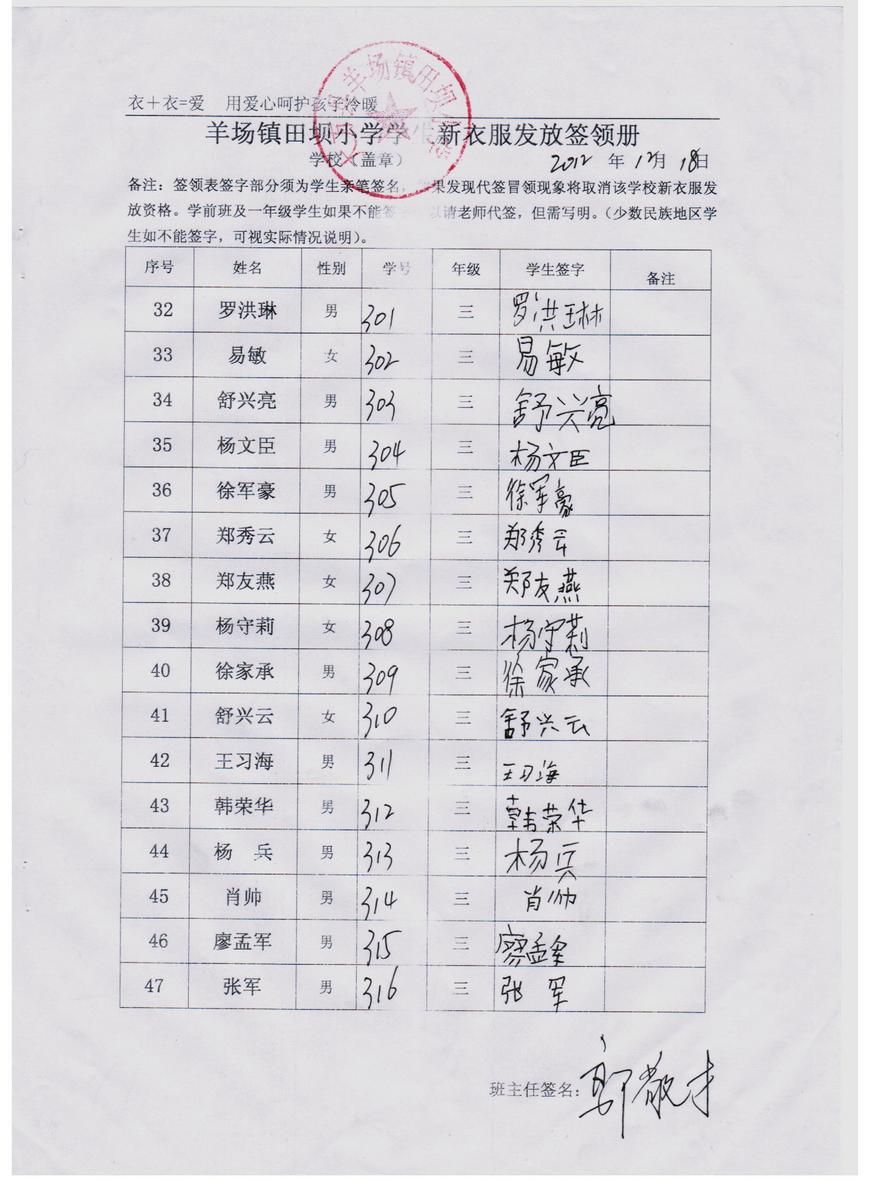 衣＋衣=爱 用爱心呵护孩子冷暖
羊场镇田坝小学学生新衣服发放签领册
学校（盖章） 2012 年 12月 18日
备注：签领表签字部分须为学生亲笔签名，如果发现代签冒领现象将取消该学校新衣服发
放资格。学前班及一年级学生如果不能签字可以请老师代签，但需写明。（少数民族地区学
生如不能签字，可视实际情况说明）。
序号 姓名 性别 学号 年级 学生签字 备注
32 罗洪琳 男 301 三 罗洪琳
33 易敏 女 302 三 易敏
34 舒兴亮 男 303 三 舒兴亮
35 杨文臣 男 304 三 杨文臣
36 徐军豪 男 305 三 徐军豪
37 郑秀云 女 306 三 郑秀云
38 郑友燕 女 307 三 郑友燕
39 杨守莉 女 308 三 杨守莉
40 徐家承 男 309 三 徐家承
41 舒兴云 女 310 三 舒兴云
42 王习海 男 311 三 王习海
43 韩荣华 男 312 三 韩荣华
44 杨 兵 男 313 三 杨兵
45 肖帅 男 314 三 肖帅
46 廖孟军 男 315 三 廖孟军
47 张军 男 316 三 张军
班主任签名：郭敬才
羊场镇田坝小学